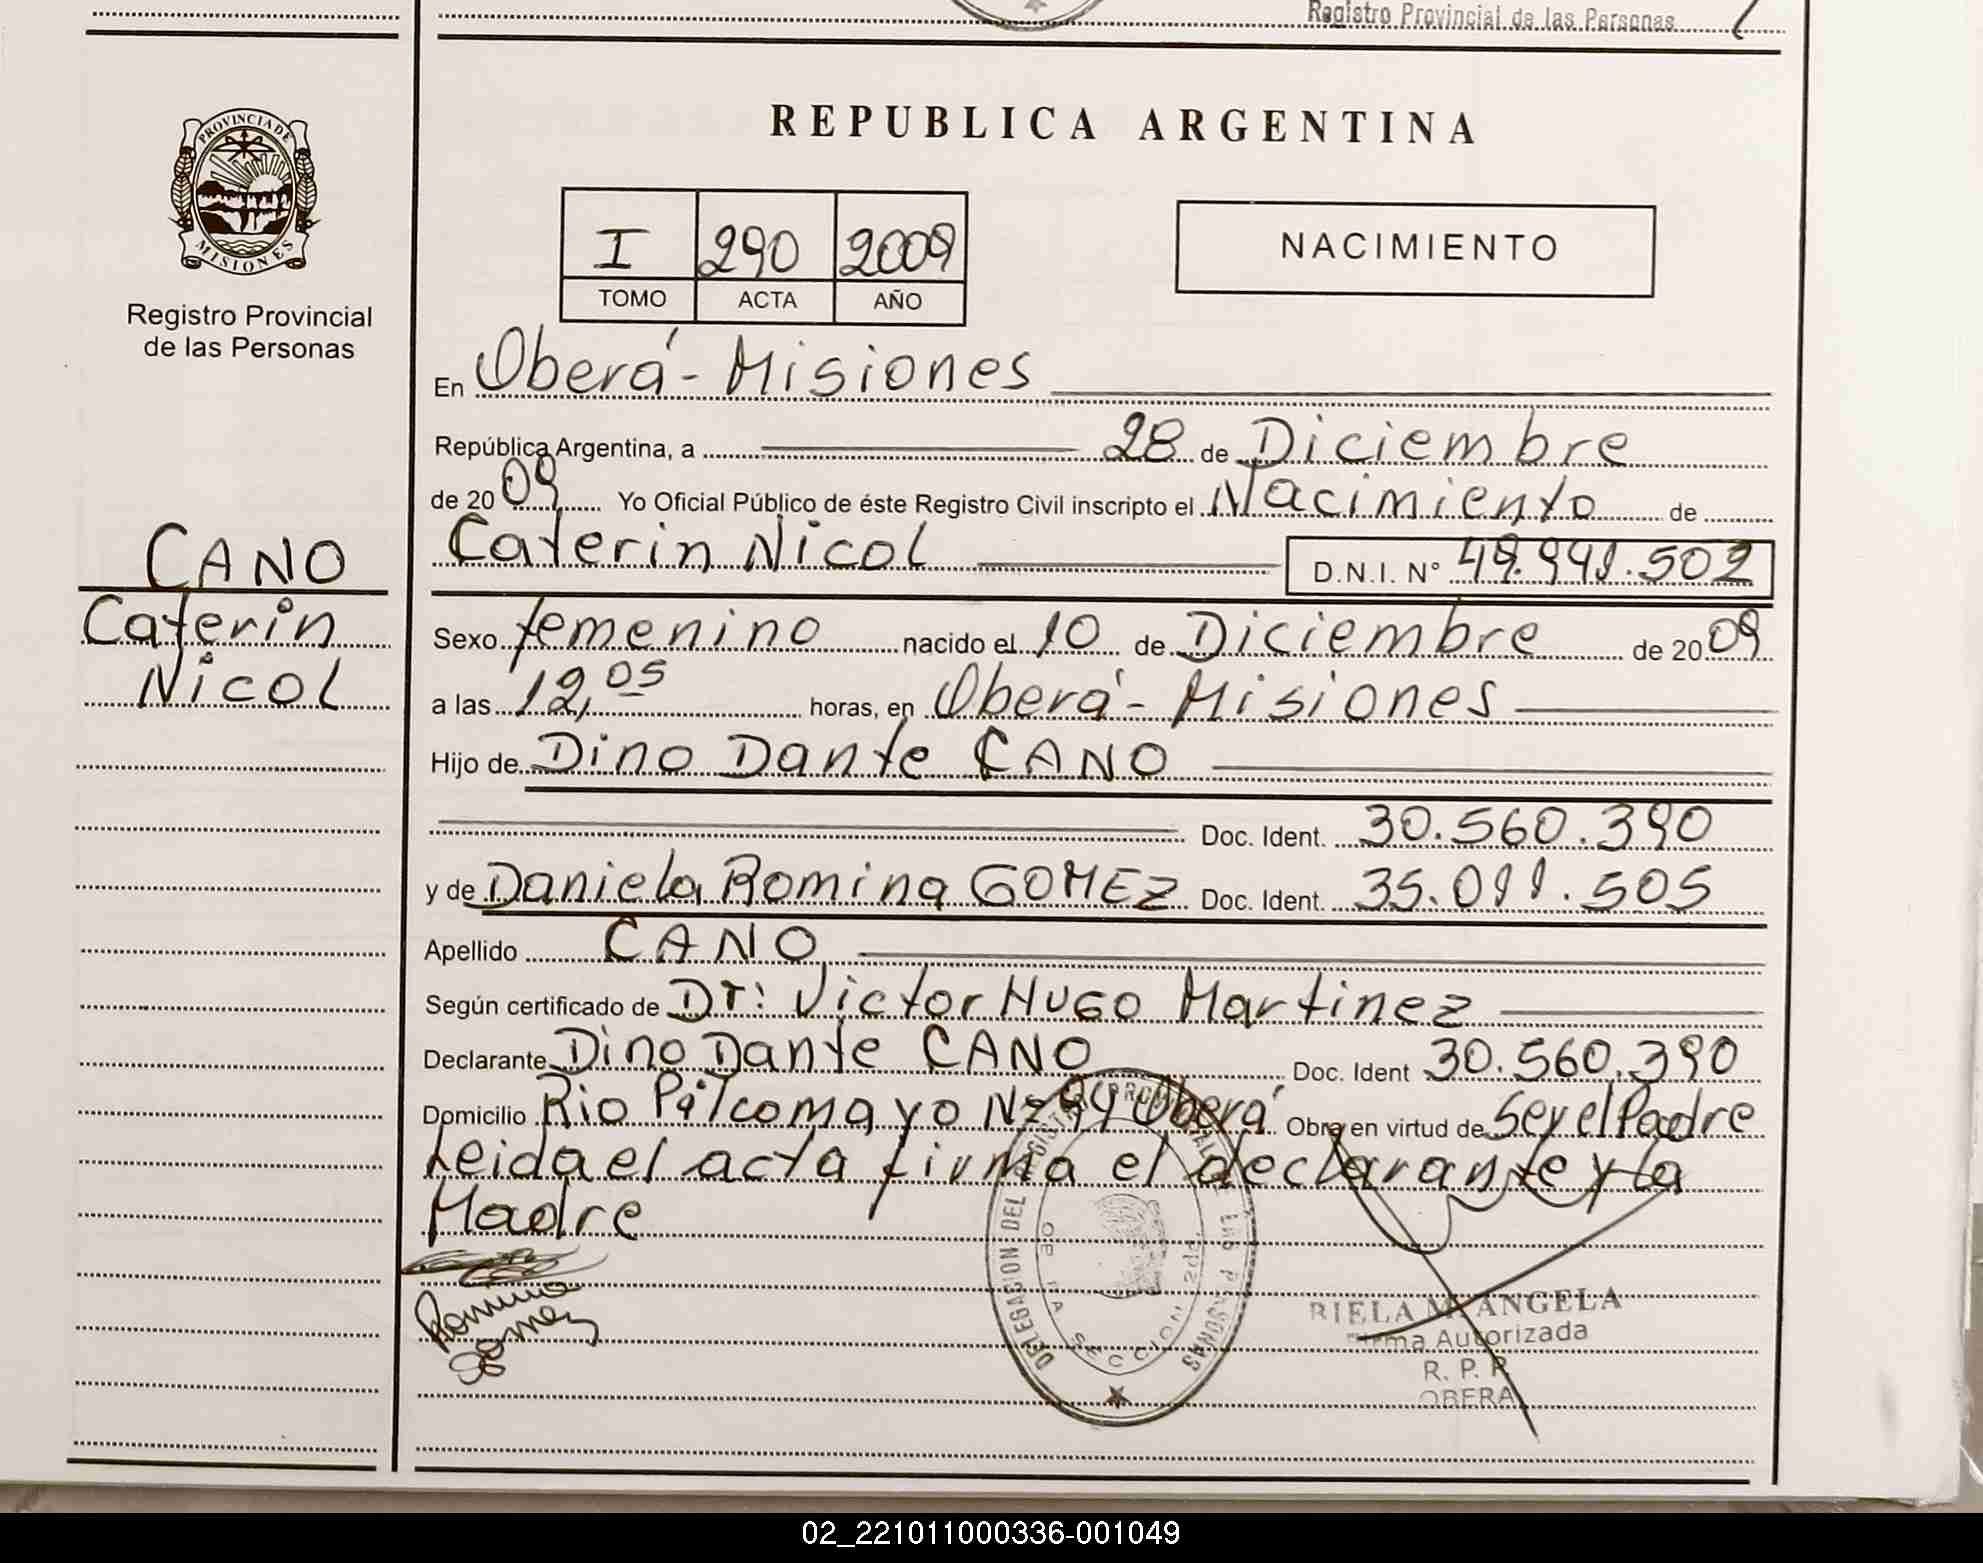 Registro Provincial de las Personas
PROVINCIA DE
MISIONES
Registro Provincial
de las Personas
CANO
Caterin
Nicol
REPUBLICA ARGENTINA
I 290 2009
TOMO ACTA AÑO
NACIMIENTO
En Oberá - Misiones
República Argentina, a 28 de Diciembre
de 2009 Yo Oficial Público de éste Registro Civil inscripto el Nacimiento de
Caterin Nicol D.N.I. N° 49.941.502
Sexo femenino nacido el 10 de Diciembre de 2009
a las 12,05 horas, en Oberá - Misiones
Hijo de Dino Dante CANO
Doc. Ident. 30.560.390
y de Daniela Romina GOMEZ Doc. Ident. 35.011.505
Apellido CANO
Según certificado de Dr: Victor HUGO Martinez
Declarante Dino Dante CANO Doc. Ident 30.560.390
Domicilio Rio Pilcomayo Oberá Obra en virtud de Ser el Padre
Leida el acta firma el declarante y la
Madre
Romina
Gomez
DELEGACION DEL REGISTRO PROVINCIAL DE LAS PERSONAS
SECCION 2da.
OBERA
RIELA M. ANGELA
Firma Autorizada
R. P. P.
OBERA
02_221011000336-001049